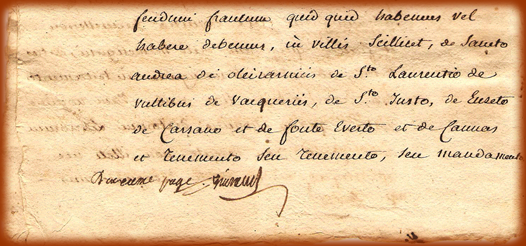 feudum francum quid quid habemus vel
habere debemus, in villis Scilicet, de Sancto
andrea de oleirarniis de S.to Laurentio de
vultibus de Vacqueriis, de S.to Justo, de Euseto
de Carsano et de fonte Everto et de Caunas
et Tenemento seu Tenemento, seu mandamento
page